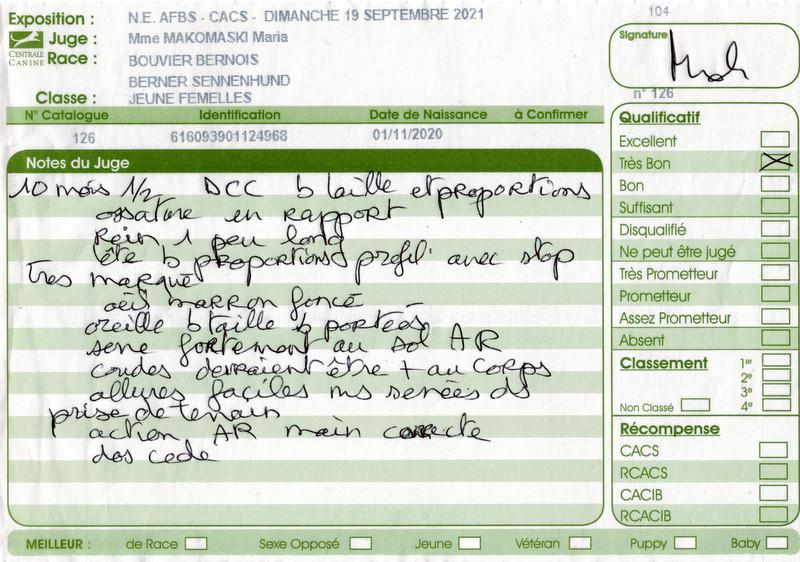 Exposition : N.E. AFBS - CACS - DIMANCHE 19 SEPTEMBRE 2021
Juge : Mme MAKOMASKI Maria
CENTRALE CANINE
Race : BOUVIER BERNOIS
BERNER SENNENHUND
Classe : JEUNE FEMELLES
104
Signature
n° 126
N° Catalogue Identification Date de Naissance à Confirmer
126 616093901124968 01/11/2020
Notes du Juge
10 mois 1/2 DCC b taille et proportions
ossature en rapport
Rein 1 peu long
tête b proportions profil avec stop
Très marqué
oeil marron foncé
oreille b taille b portées
serré fortement au sol AR
coudes devraient être + au corps
allures faciles ms serrées ds
prise de terrain
action AR main correcte
dos cède
Qualificatif
Excellent
Très Bon
Bon
Suffisant
Disqualifié
Ne peut être jugé
Très Prometteur
Prometteur
Assez Prometteur
Absent
Classement 1er
2e
3e
Non Classé 4e
Récompense
CACS
RCACS
CACIB
RCACIB
MEILLEUR : de Race Sexe Opposé Jeune Vétéran Puppy Baby